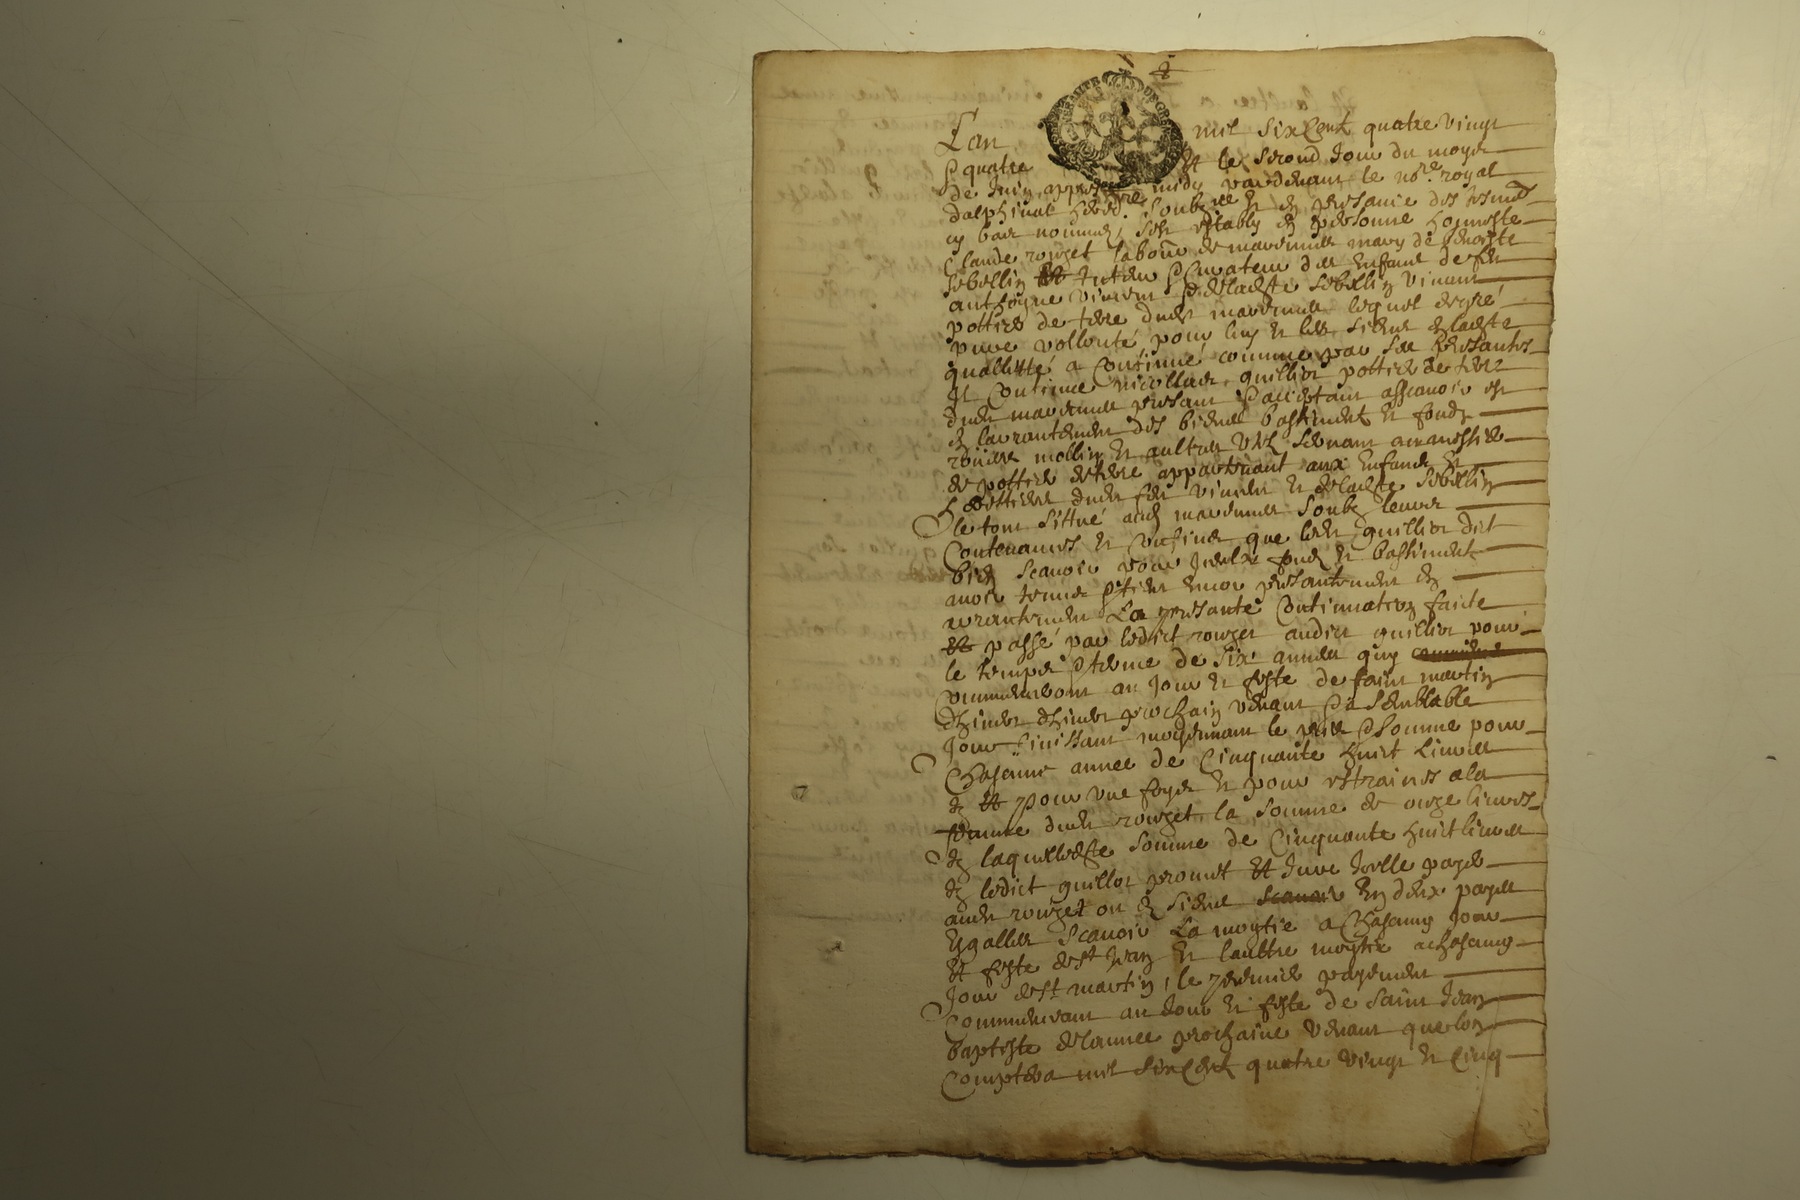 Lan mil six Cent quatre vingt
& quatre Et le second Jour du moys
de Juin appres midy pardevant le no.re royal
dalphinal hered.re soubz.né Et en presance des tesmoings
cy bas nommes, sest estably en personne honneste
Claude rouget labour de marennes mary de benoiste
sebellin Et tuteur & Curateur des Enfans de feu
anthoyne vincent & de ladite sebellin vivant
pottier de terre dudit marennes lequel de gre
pure vollonté pour luy Et les siens En ladite
quallitté a Continué comme par ses presantes
Il Continue nicollas guillot pottier de terre
dudit marennes presant & acceptant asscavoir est
En larrantement des biens bastiment Et fonds
mollin Et aultres servant au mestier
de pottier de terre appartenant aux Enfans Et
heritiers dudit feu vincent Et de ladite sebellin
le tout sittué audit marennes soubz leurs
Contenances Et Confins que ledit guillot dit
bien scavoir pour Iceulx fonds Et bastiment
avoir tenus & tient encor presantement En
arrantement La presante Continuation faicte
Et passé par ledict rouget audict guillot pour
le temps & terme de six annees quy
Commenceront au Jour Et feste de saint martin
dhiver dhiver prochain venant & a semblable
Jour finissant moyennant le prix & somme pour
Chascune annee de Cinquante huict Livres
Et pour une foys Et pour estraines a la
femme dudit rouget la somme de onze livres
laquelle dite somme de Cinquante huict livres
ledict guillot promet Et Jure Icelle payer
audit rouget ou En siens En deux payes
Egalles scavoir La moytié a Chascung Jour
Et feste de st Jean Et laultre moytié a chascung
Jour de st martin, le premier payement
Commencant au Jour Et feste de saint Jean
baptiste de lannee prochaine venant que lon
Comptera mil six Cent quatre vingt Et Cinq